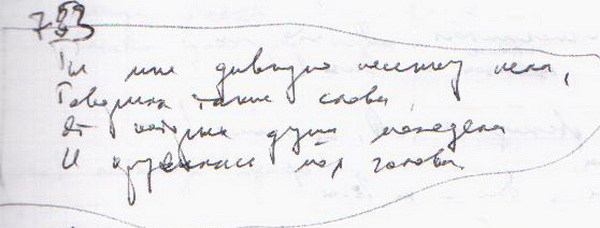 733
Ты мне дивную песенку пела,
Говорила такие слова,
От которых душа молодела
И кружилась моя голова.